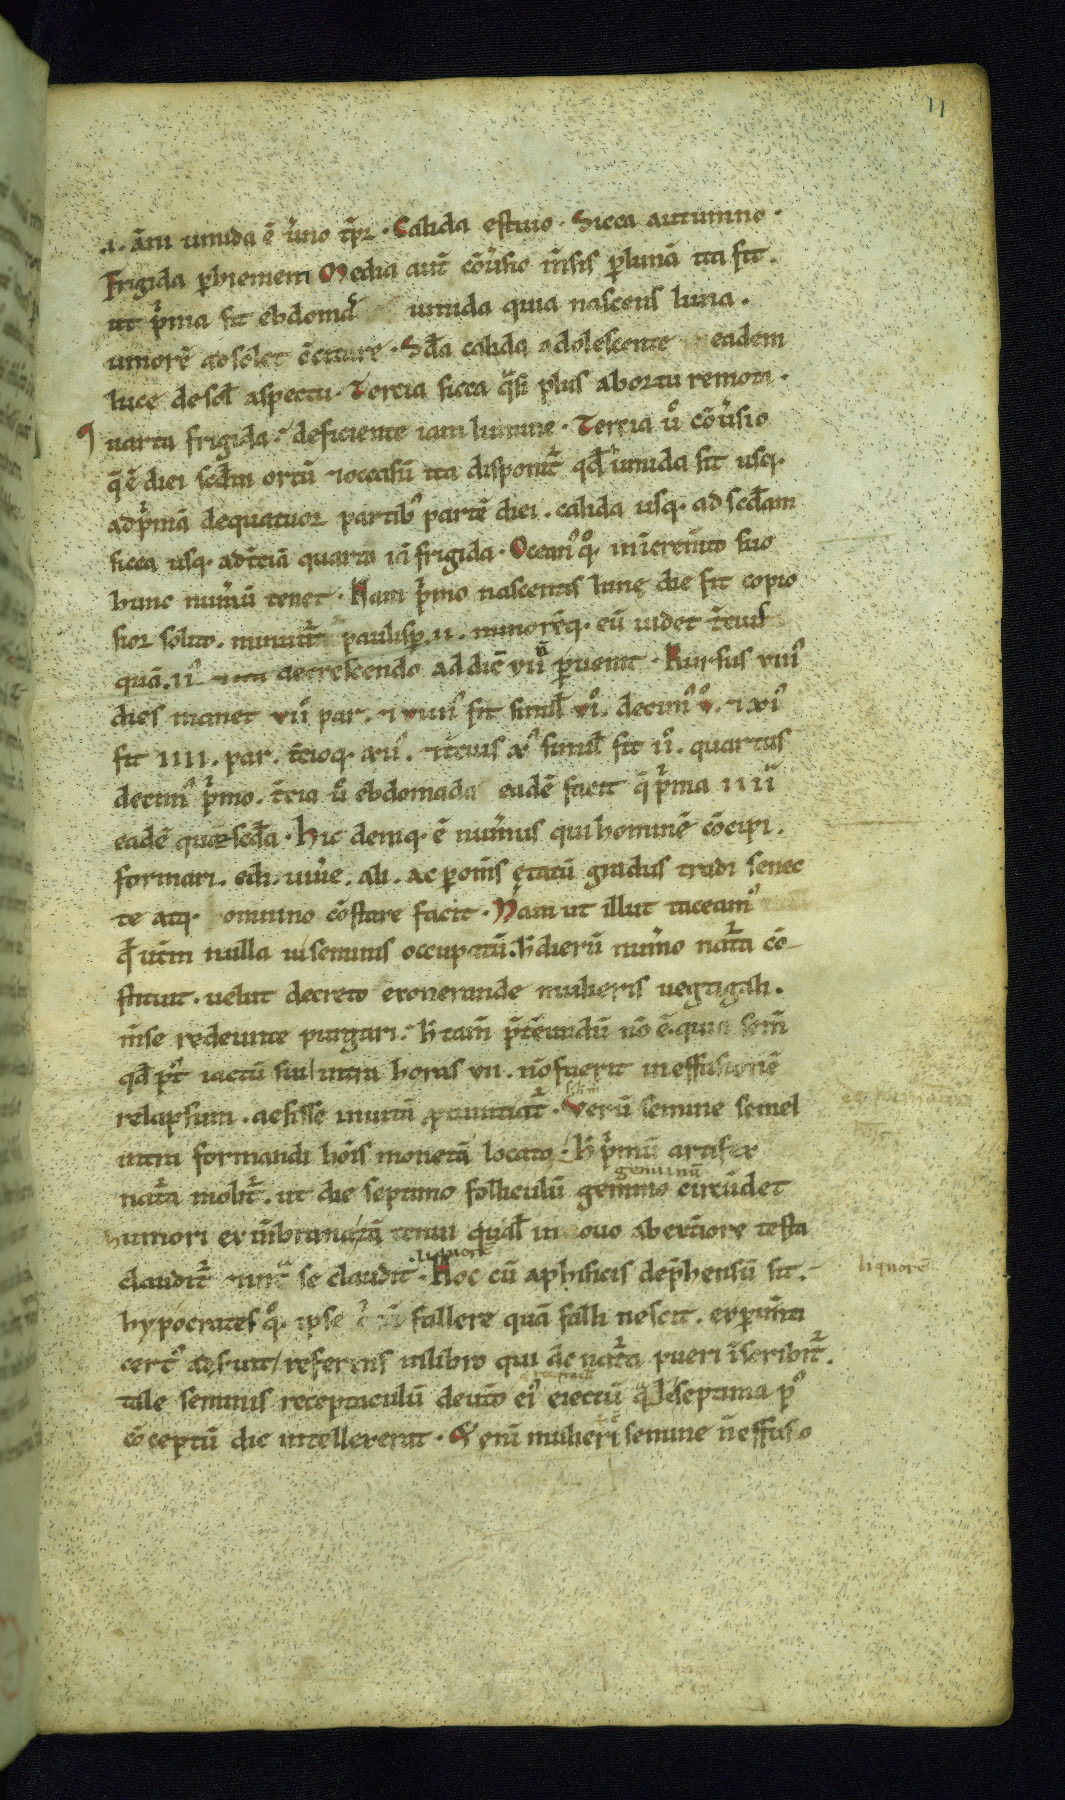 11
.i. ām umida ē ũno tp̄r. Calida estiuo. Sicca autumno.
Frigida phiemem Media aut̄ cōūsio m̄sis plunā ita fit.
ut p̄ma sit ebdomad umida quia nascens luna.
umorē adsolet cōcitare. Sc̄da calida adolescente eadem
luce desol̄ aspectu. Tercia sicca q̄si plus abortu remota.
Quarta frigida. deficiente iam lumine. Tercia u͛o cōūsio
q̄ ē diei sc̄dm ortū ⁊occasū ita disponit̄ qd̄ umida sit usq.
adp̄mā dequatuor partib᷒ partē diei. calida usq. ad sc̄dam
sicca usq. adt̄ciā quarta iā frigida. Ocean᷒ q͛q. in īcrem̄to suo
hunc num̄ū tenet. Nam p̄mo nascentis lunę die fit copio
sior solito. minuit̄ paulisp. ii. minorēq. eū uidet t̄cius
quā .ii᷒ decrescendo addiē vii puenit. Rursus viii᷒
dies manet vii᷒ par. ⁊ viiii᷒ fit simil̄ vi᷒. decim᷒ v᷒. ⁊ xi᷒
fit iiii. par. t̄cioq. xii᷒. ⁊t̄cius x᷒ simil̄ fit ii᷒. quartus
decim᷒ p̄mo. t̄cia u͛o ebdomada eadē facit q̄ p̄ma iiii
eadē quae sc̄da. Hic deniq. ē num̄us qui hominē cōcipi.
formari. edi. uiūe. ali. ac p om̄s ętatū gradus tradi senec
te atq. omnino cōstare facit. Nam ut illut taceam᷒
q̄ ut̄m nulla ui seminis occupatū. h̄ dierū num̄o nat̄a cō-
stituit. uelut decreto exonerande mulieris uegtigali.
m̄se redeunte purgari. h̄ tam̄ p̄t̄eundū nō ē. quia sem̄
qd̄ p᷒t iactū sui intra horas vii. nō fuerit in effusionē
relapsum. aesisse inuitā pnuntiat̄. Verū semine semel
intra formandi hōis monetā locato. h̄ p̄mū artifex
nat̄a molit̄. ut die septimo folliculū gemino circūdet
geminū
humori ex m̄branazā tenui qual̄ in ouo abextiore testa
claudit̄ ⁊int̄ se claudit. Hoc cū aphisicis dep̄hensū sit.
liquorē
liquorē
hypocrates q͛q. ipse fallere quā falli nescit. expim̄ta
cert᷒ aesruit referens inlibro qui de nat̄a pueri īscribit̄.
tale seminis receptaculū deut̄o ei᷒ eiectū qd̄ septima p᷒
cōceptū die intellexerat. enī mulierē semine n̄ effuso